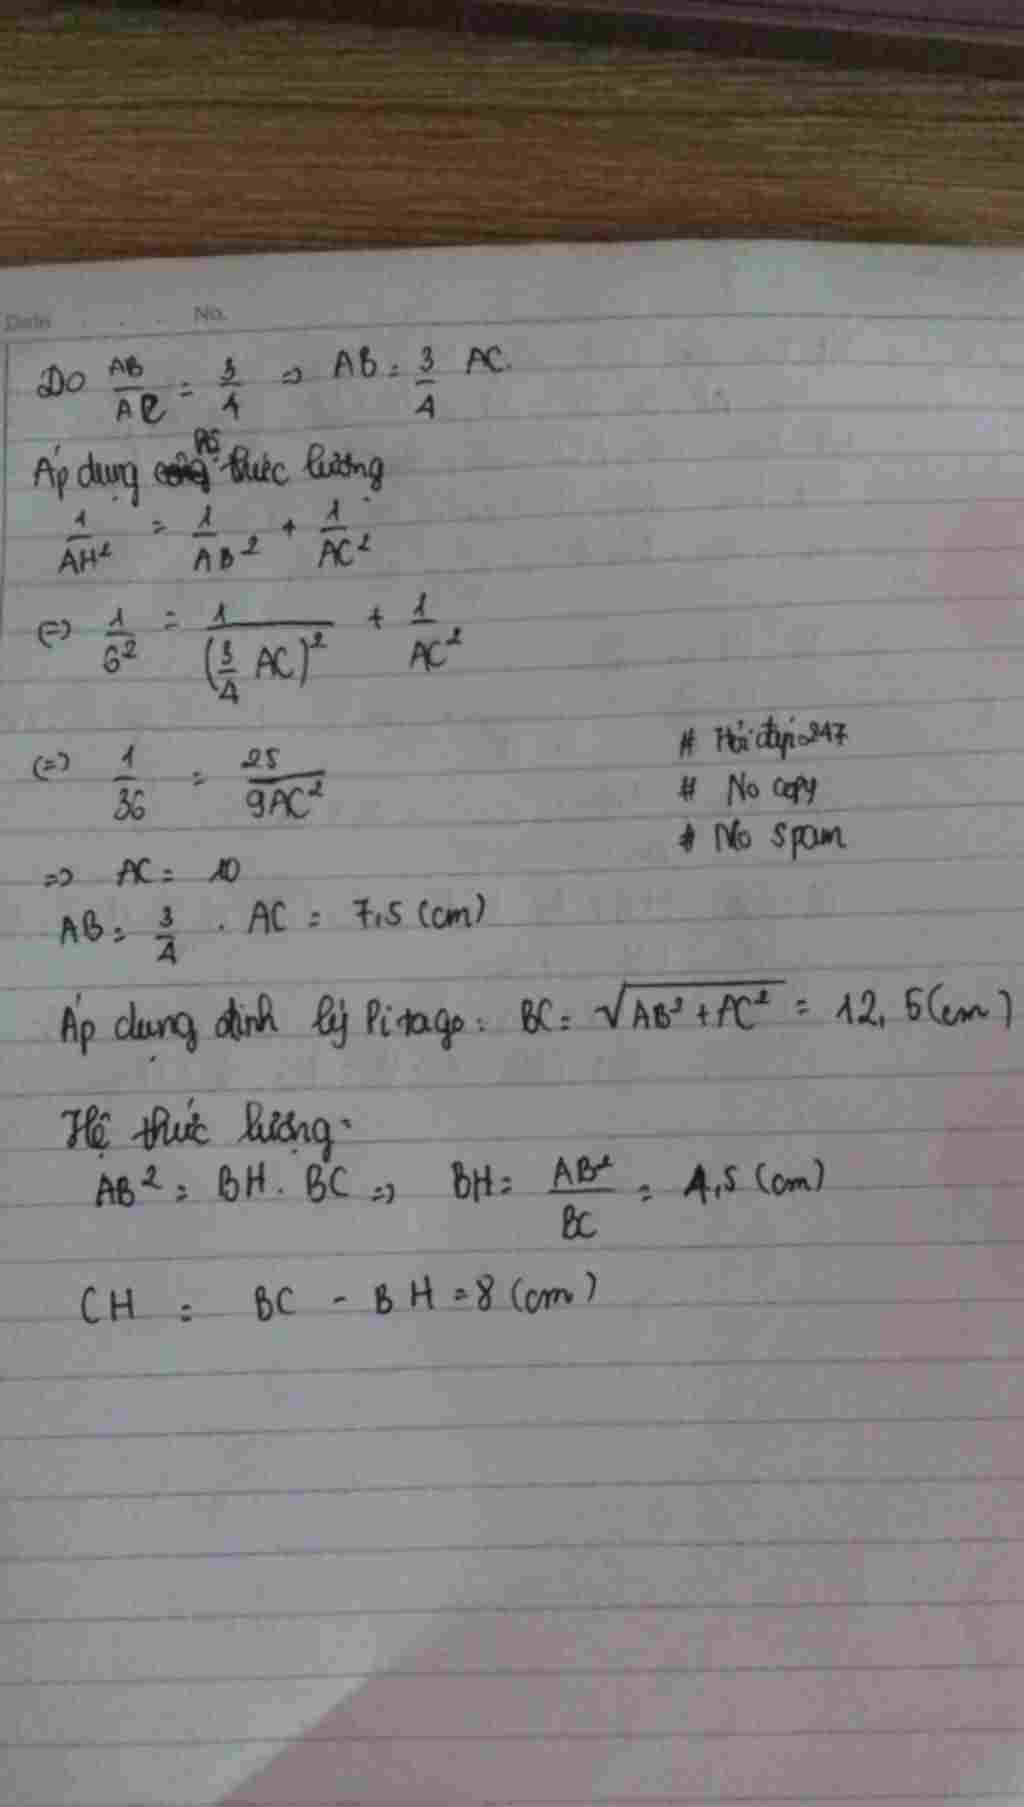 Date No.
Do AB/AC = 3/4 => AB = 3/4 AC.
Áp dụng hệ thức lượng
1/AH² = 1/AB² + 1/AC²
(=) 1/6² = 1/(3/4 AC)² + 1/AC²
(=) 1/36 = 25/9AC²
# Hỏi đáp 247
# No copy
# No spam
=> AC = 10
AB = 3/4 . AC = 7,5 (cm)
Áp dụng định lý Pitago: BC = √AB² + AC² = 12,5 (cm)
Hệ thức lượng:
AB² = BH. BC => BH = AB²/BC = 4,5 (cm)
CH = BC - BH = 8 (cm)